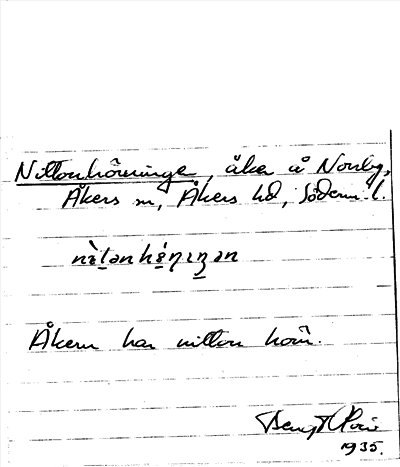 Nittonhörningen, åker å Norrby,
Åkers sn, Åkers hd, Söderm. l.
nìtənhö́ṇıŋən
Åkern har nitton hörn.
Bengt
1935.